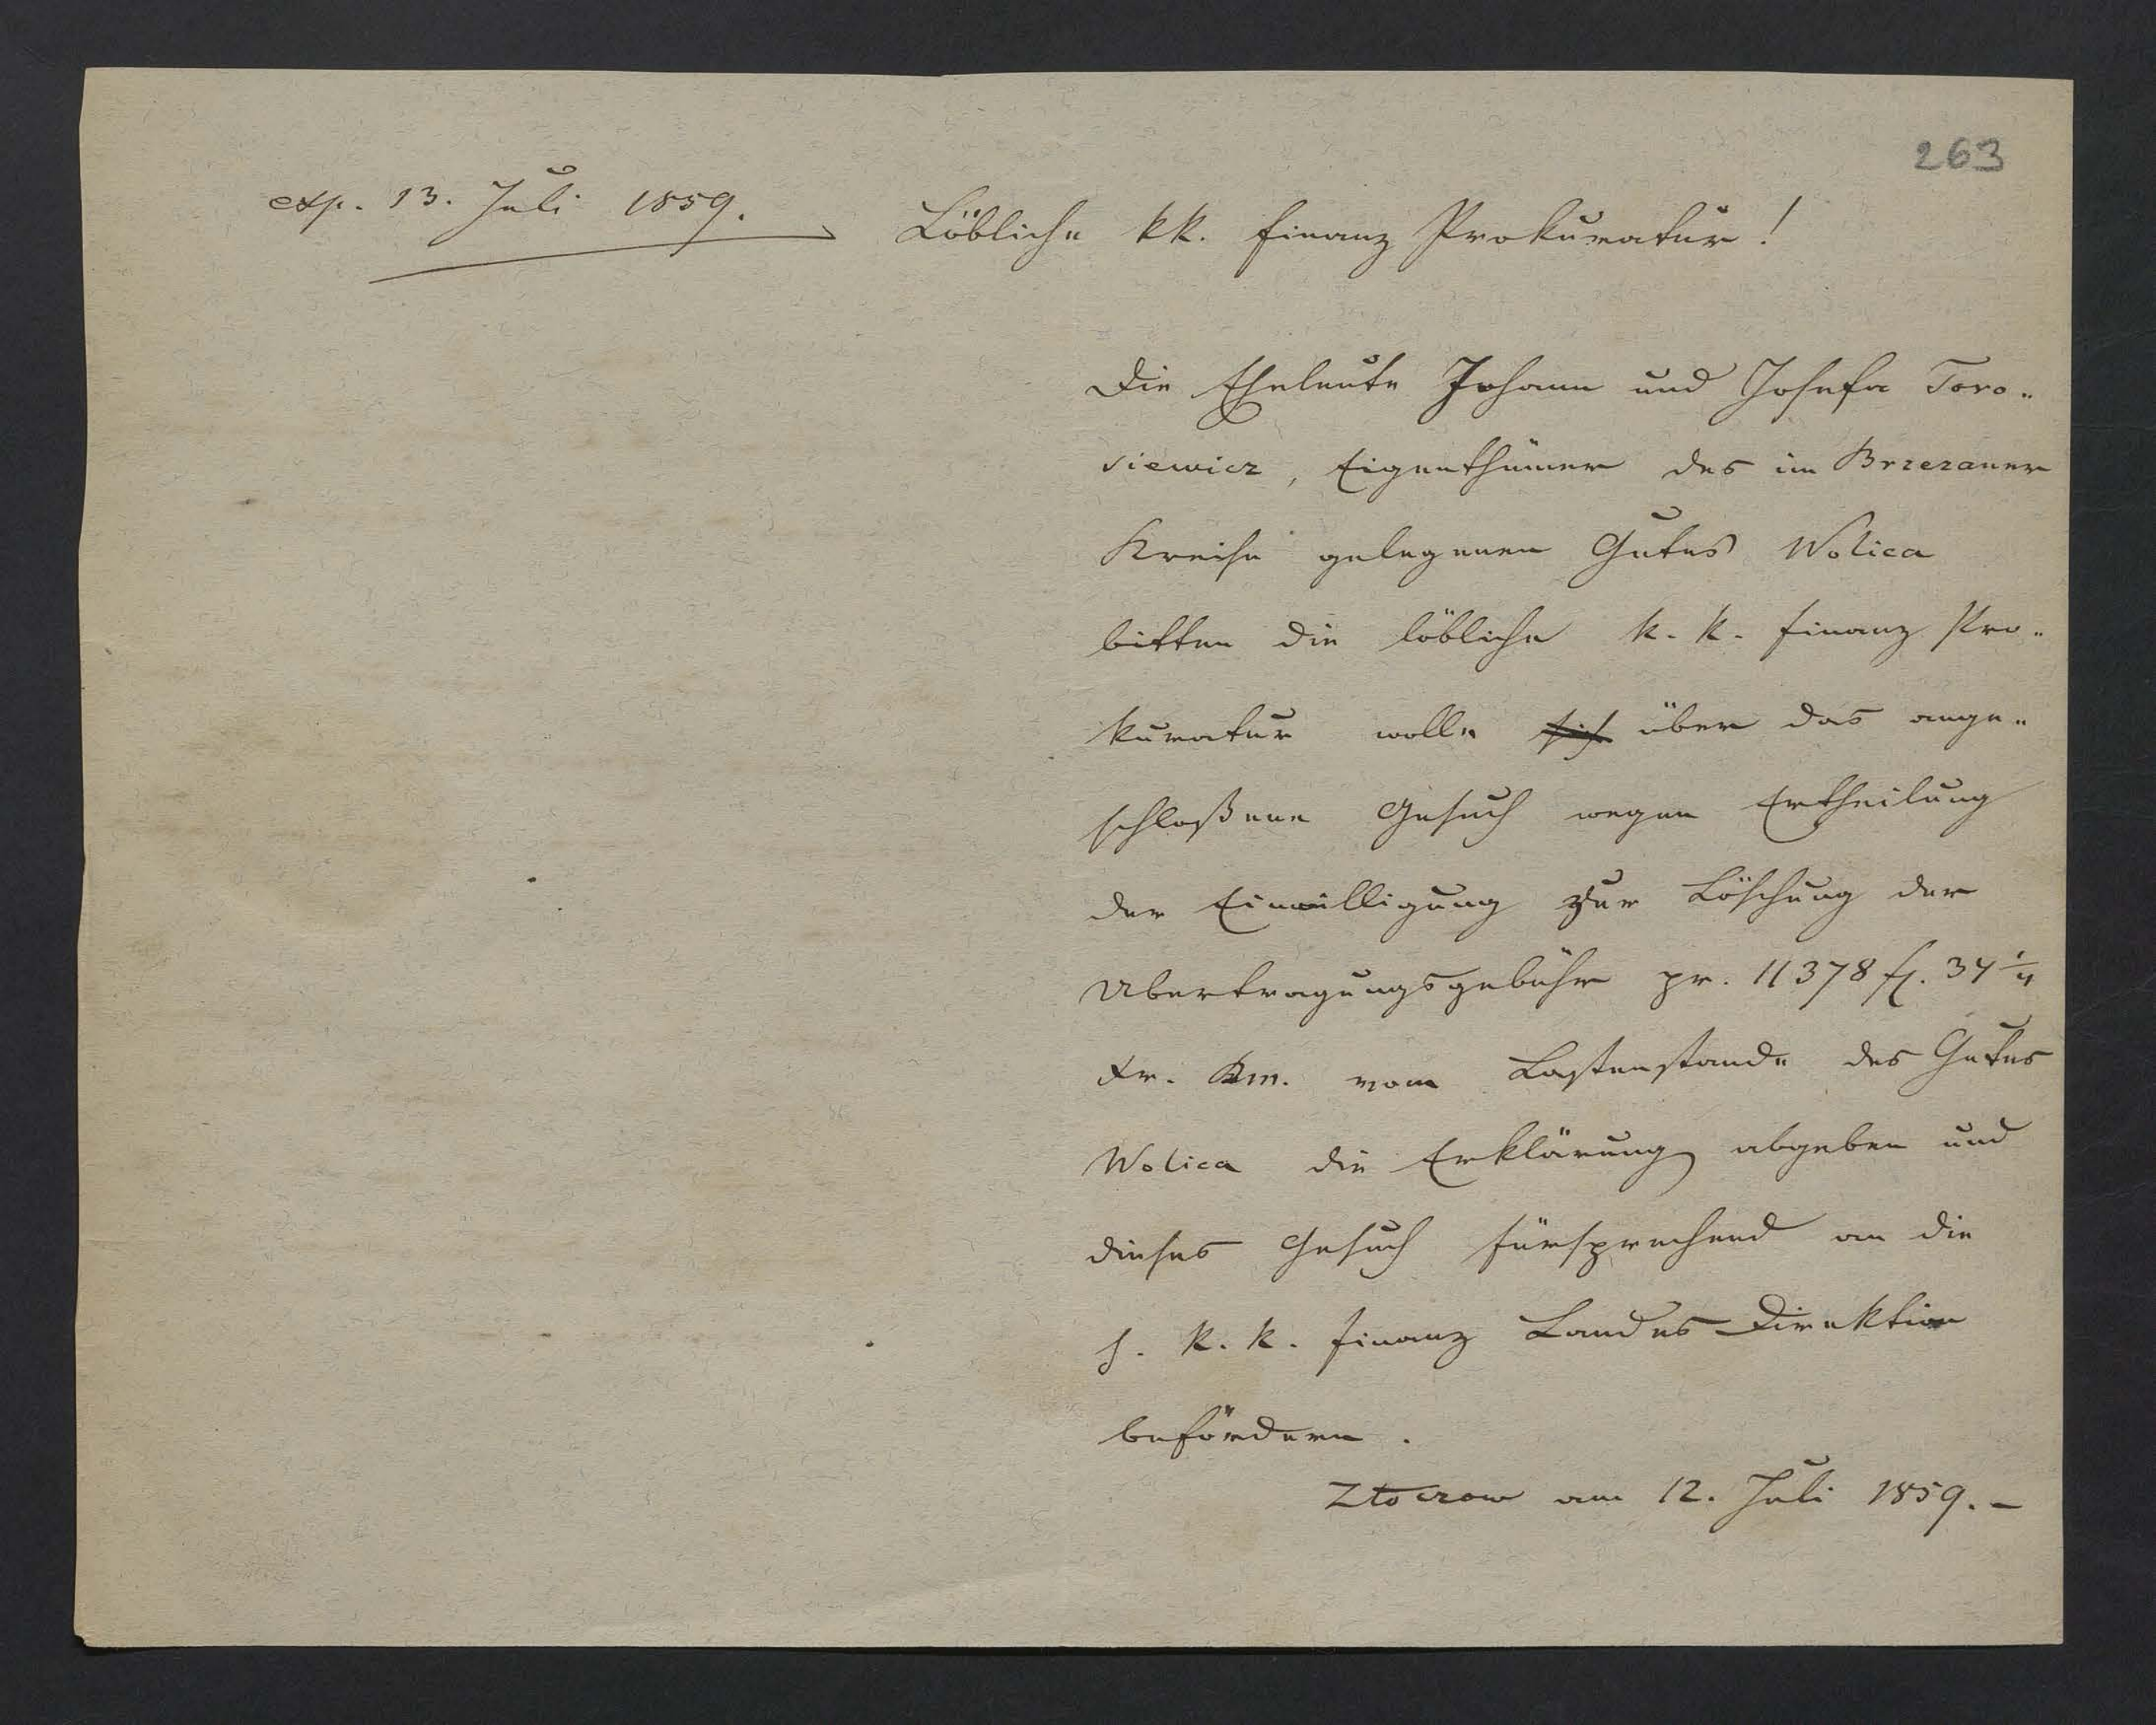 263
exp. 13. Juli 1859.
Löbliche kk. Finanz Prokuratur!
Die Eheleute Johann und Josefa Toro„
siewicz, Eigenthümer des im Brzezaner
Kreise gelegenen Gutes Wolica
bitten die löbliche k. k. Finanz Pro„
kuratur wolle sich über das ange„
schloßene Gesuch wegen Ertheilung
der Einwilligung zur Löschung der
Ubertragungsgebühr pr. 11378 fl. 34 1/4
Xr. Km. vom Lastenstande des Gutes
Wolica die Erklärung abgeben und
dieses Gesuch fürsprechend an die
h. k. k. Finanz Landes-Direktion
befördern.
Złoczow am 12. Juli 1859. –